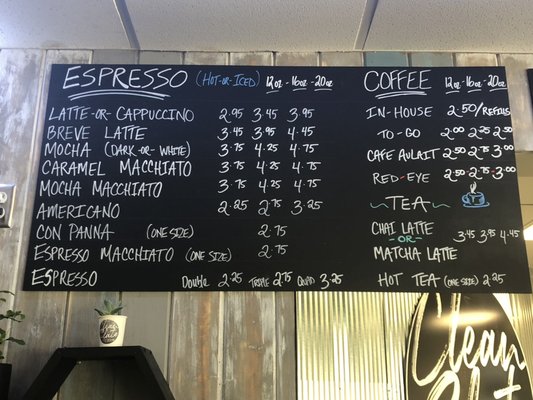 ESPRESSO (HOT-OR-ICED) 12oz - 16oz - 20oz
LATTE-OR-CAPPUCCINO 2.95 3.45 3.95
BREVE LATTE 3.45 3.95 4.45
MOCHA (DARK-OR-WHITE) 3.75 4.25 4.75
CARAMEL MACCHIATO 3.75 4.25 4.75
MOCHA MACCHIATO 3.75 4.25 4.75
AMERICANO 2.25 2.75 3.25
CON PANNA (ONE SIZE) 2.75
ESPRESSO MACCHIATO (ONE SIZE) 2.75
ESPRESSO Double 2.25 TRIPLE 2.75 QUAD 3.25
COFFEE 12oz - 16oz - 20oz
IN-HOUSE 2.50/REFILLS
TO-GO 2.00 2.25 2.50
CAFE AULAIT 2.50 2.75 3.00
RED-EYE 2.50 2.75 3.00
~TEA~
CHAI LATTE
-OR- 3.45 3.95 4.45
MATCHA LATTE
HOT TEA (ONE SIZE) 2.25
Clean